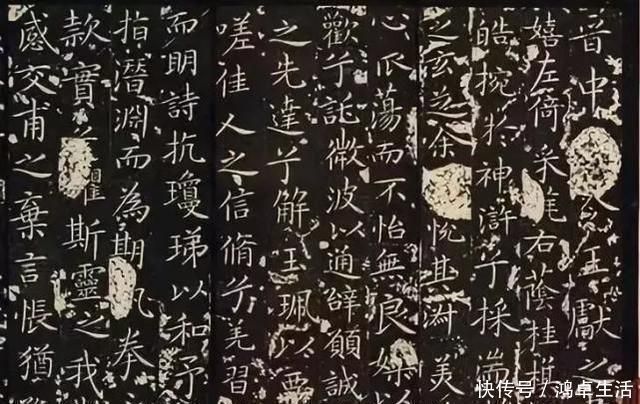 晉中王獻之
嬉左倚采旄右蔭桂旗
皓捥於神滸兮採湍
之玄芝余悅其淑美
心振蕩而不怡無良媒以
歡兮託微波以通辭願誠
之先達兮解玉珮以要
嗟佳人之信脩兮羌習
而明詩抗瓊珶以和予
指潛淵而為期執
款實懼斯靈之我
感交甫之棄言悵猶
快传号/鸿卓生活